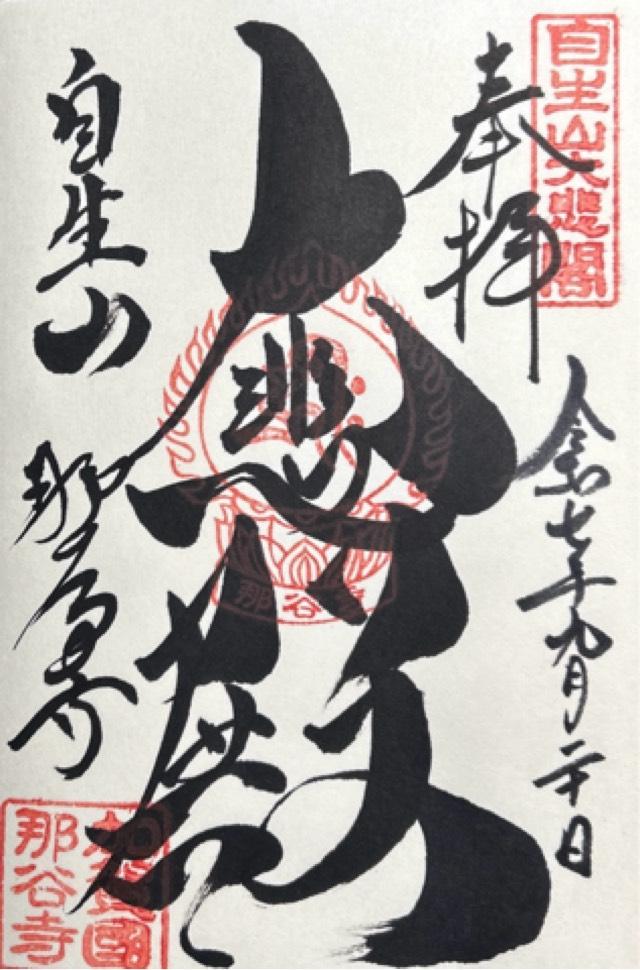 自生山大悲閣
奉拝
令和七年九月二十日
大悲殿
那谷寺
自生山
那谷寺
加賀國
那谷寺